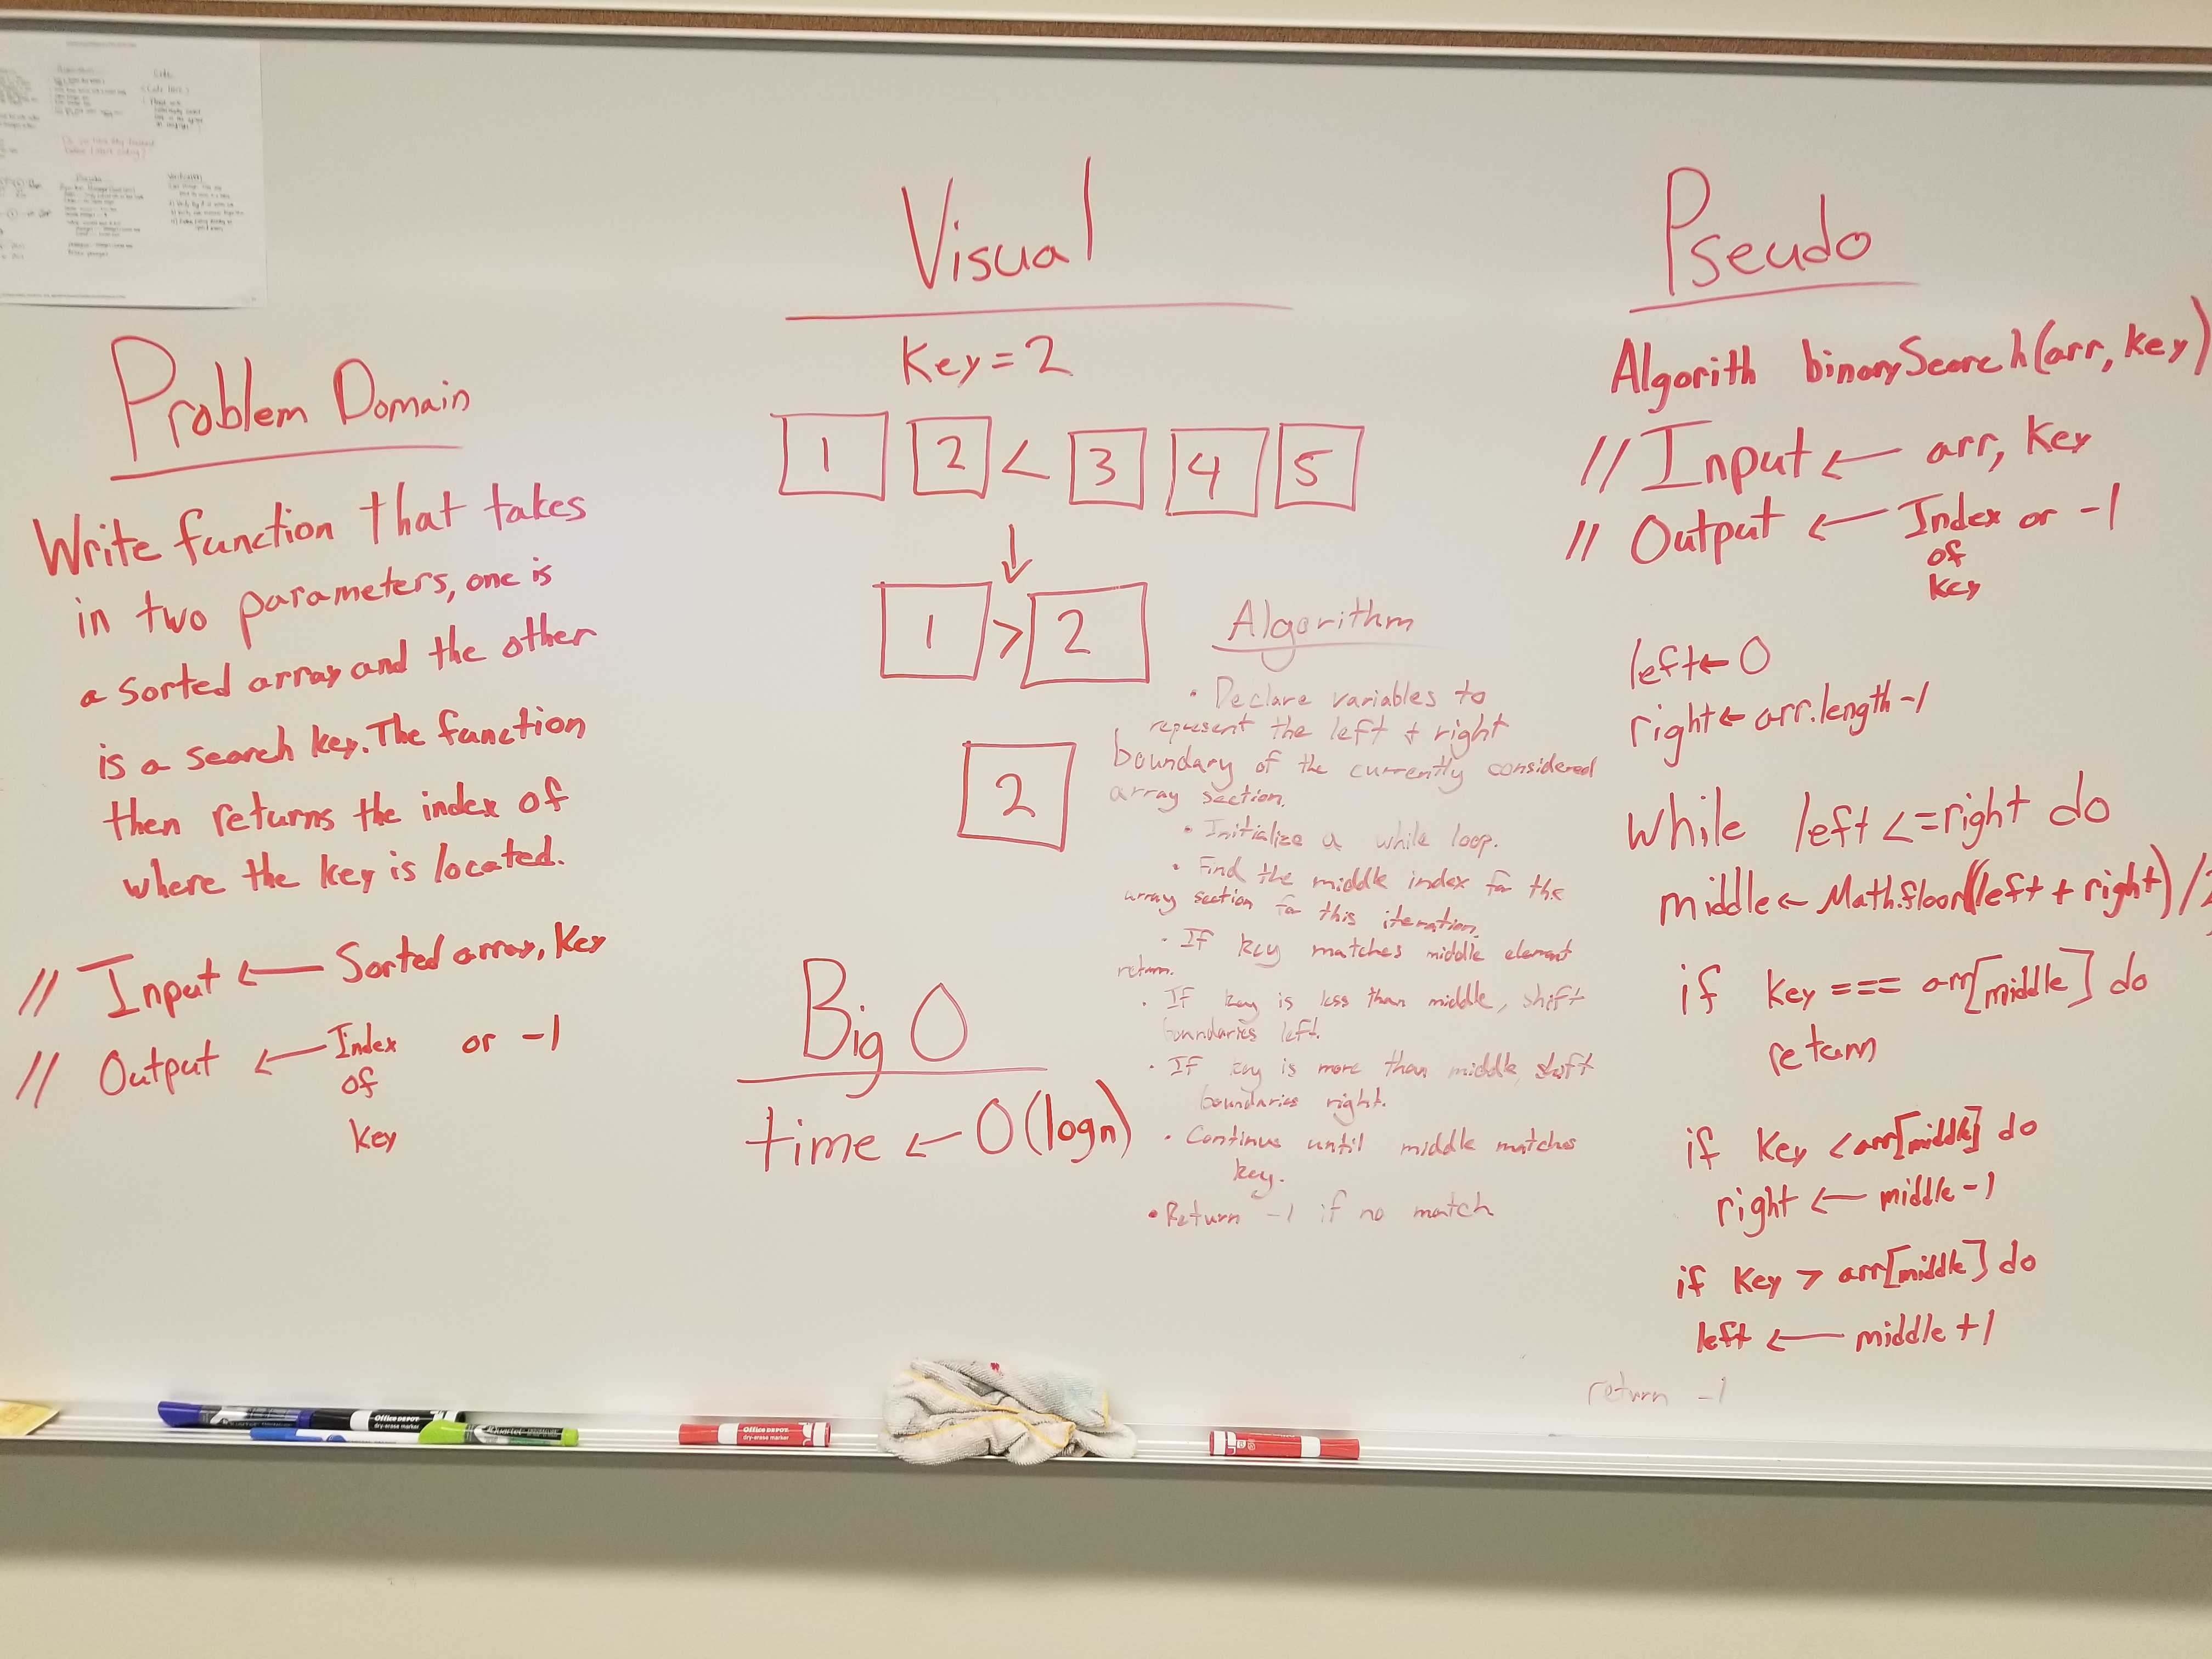 Problem Domain
Write function that takes
in two parameters, one is
a sorted array and the other
is a search key. The function
then returns the index of
where the key is located.
// Input ← Sorted array, Key
// Output ← Index or -1
of
key
Visual
Key = 2
1 2 < 3 4 5
↓
1 > 2
2
Big O
time ← O(logn)
Algorithm
• Declare variables to
represent the left + right
boundary of the currently considered
array section.
• Initialize a while loop.
• Find the middle index for the
array section for this iteration.
• If key matches middle element
return.
• If key is less than middle, shift
boundaries left.
• If key is more than middle, shift
boundaries right.
• Continue until middle matches
key.
• Return -1 if no match
Pseudo
Algorith binarySearch(arr, key)
// Input ← arr, key
// Output ← Index or -1
of
key
left ← 0
right ← arr.length-1
while left <= right do
middle ← Math.floor((left + right)/2
if key === arr[middle] do
return
if key < arr[middle] do
right ← middle -1
if key > arr[middle] do
left ← middle +1
return -1
Office DEPOT
dry-erase marker
Office DEPOT
dry-erase marker